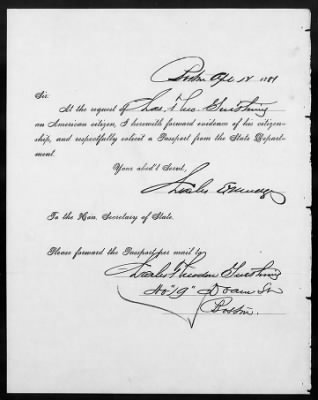 Boston Apl 14 1881
Sir:
At the request of Chas. Theo.
an American citizen, I herewith forward evidence of his citizen-
ship, and respectfully solicit a Passport from the State Depart-
ment.
Your obed't Servt,
Charles
To the Hon. Secretary of State.
Please forward the Passport per mail to
Charles Theodore
No "19" Doane St
Boston.